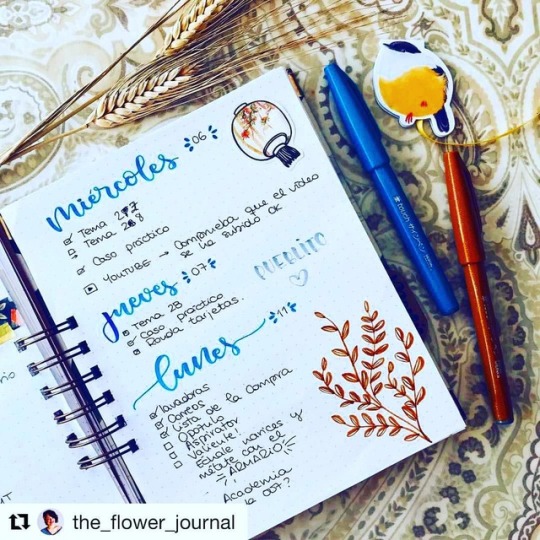 Miércoles 06
Tema 27
Tema 28
Caso práctico
YOUTUBE → Comprueba que el vídeo
se ha subido OK
jueves 07
Tema 28
Caso práctico
Ronda tarjetas.
lunes 11
lavadoras
Correos
Lista de la Compra
Aspirador
Valiente!
Échale narices y
métete con el
ARMARIO
Academia
la 007?
the_flower_journal